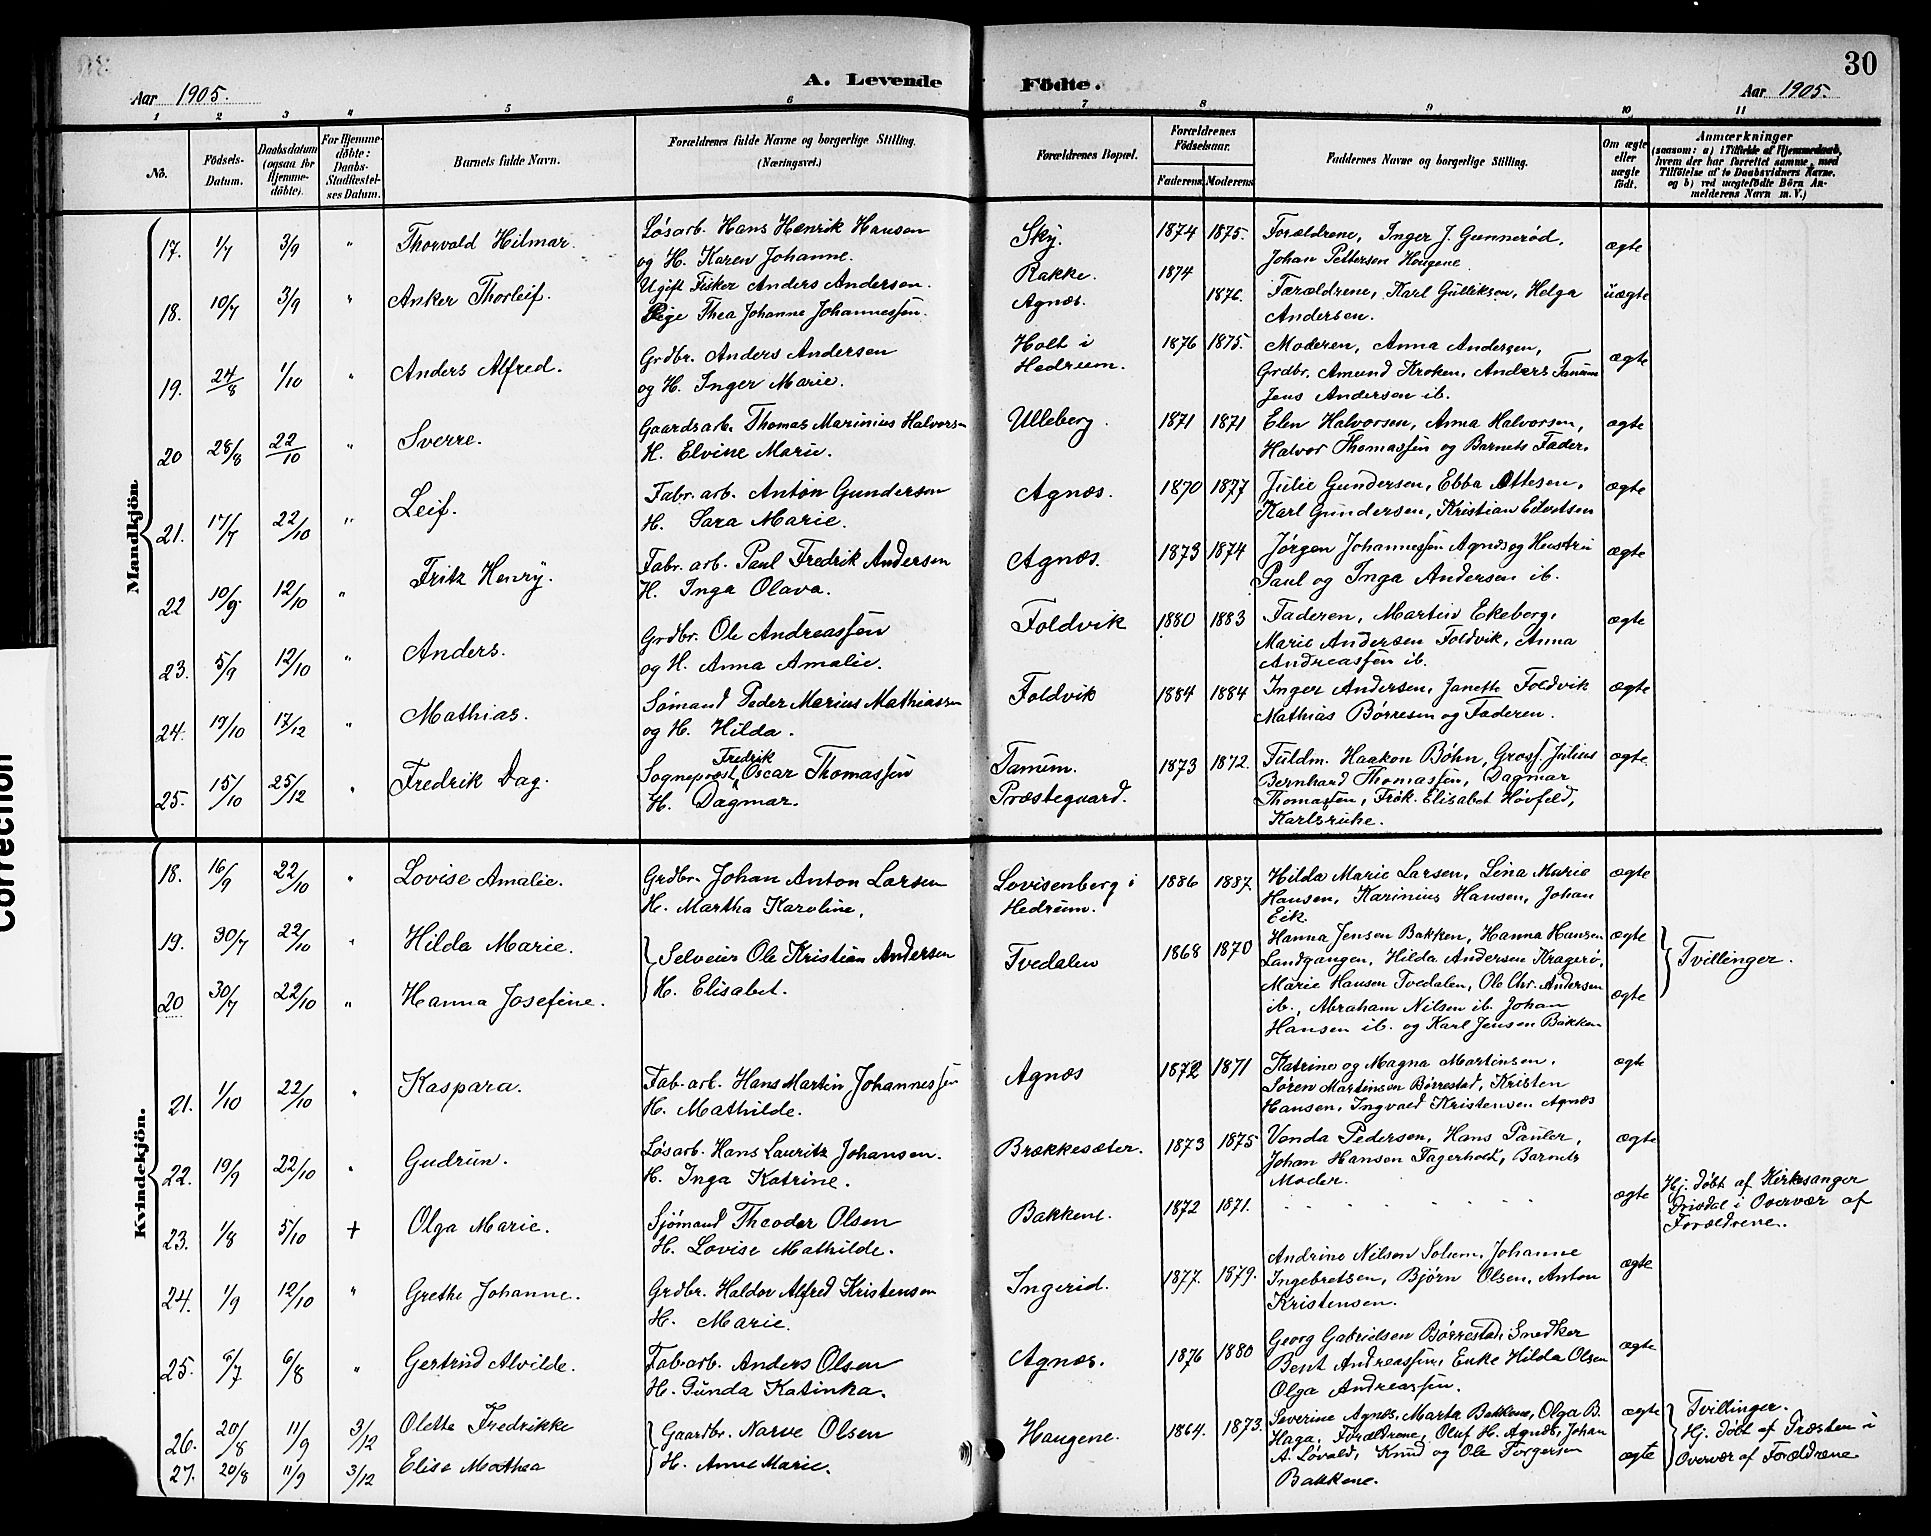 30
A. Levende Födte.
Aar 1905.
Aar 1905.
1 2 3 4 5 6 7 8 9 10 11
No.
Födsels-Datum.
Daabsdatum (ogsaa for Hjemme-döbte).
For Hjemme-döbte: Daabs-Stadfæstel-ses Datum.
Barnets fulde Navn.
Forældrenes fulde Navne og borgerlige Stilling. (Næringsvei.)
Forældrenes Bopæl.
Forældrenes Födselsaar.
Faderens Moderens
Faddernes Navne og borgerlige Stilling.
Om ægte eller uægte födt.
Anmærkninger
(saasom: a) i Tilfælde af Hjemmedaab,
hvem der har forrettet samme, med
Tilföielse af to Daabsvidners Navne,
og b) ved uægtefödte Börn An-
melderens Navn m. V.)
Mandkjön
17. 1/7 3/9 " Thorvald Hilmar. Løsarb. Hans Henrik Hansen Sky. 1874 1875. Forældrene, Inger J. Gunnerød, ægte
og H. Karen Johanne. Johan Pettersen Haugene.
18. 10/7 3/9 " Anker Thorleif. Ugift Fisker Anders Andersen. Rakke. 1874 Forældrene, Karl Gulliksen, Helga uægte
Pige Thea Johanne Johannessen. Agnæs. 1876. Andersen.
19. 24/8 1/10 " Anders Alfred. Grdbr. Anders Andersen Holt i 1876 1875. Moderen, Anna Andersen, ægte
og H. Inger Marie. Hedrum. Grdbr. Amund Kroken, Anders Tanum
Jens Andersen ib.
20 28/8 22/10 " Sverre. Gaardsarb. Thomas Marinius Halvorsen Ulleberg. 1871 1871 Elen Halvorsen, Anna Halvorsen, ægte
H. Elvine Marie. Halvor Thomassen og Barnets Fader.
21. 17/7 22/10 " Leif. Fabr. arb. Anton Gundersen Agnæs. 1870 1877 Julie Gundersen, Ebba Ottesen, ægte
H. Sara Marie. Karl Gundersen, Kristian Eilertsen
22 10/9. 12/10 " Fritz Henry. Fabr. arb. Paul Fredrik Andersen Agnæs. 1873 1874 Jørgen Johannessen Agnæs og Hustru ægte
H. Inga Olava. Paul og Inga Andersen ib.
23. 5/9 12/10 " Anders. Grdbr. Ole Andreassen Foldvik 1880 1883 Faderen, Martin Ekeberg, ægte
og H. Anna Amalie. Marie Andersen Foldvik, Anna
Andreassen ib.
24. 19/10 17/12 " Mathias. Sømand Peder Marius Mathiassen Foldvik 1884 1884 Inger Andersen, Janette Foldvik ægte
og H. Hilda. Mathias Børresen og Faderen.
25. 15/10 25/12 " Fredrik Dag. Sogneprest Fredrik Oscar Thomassen Tanum 1873 1872. Fuldm. Haakon Bøhn, Gross. Julius ægte.
H. Dagmar. Præstegaard. Bernhard Thomassen, Dagmar
Thomassen, Frøk. Elisabet Høvfeld,
Karlsruhe.
Kvindekjön.
18. 16/9 22/10 " Lovise Amalie. Grdbr. Johan Anton Larsen Lovisenberg i 1886 1887 Hilda Marie Larsen, Lina Marie ægte
H. Martha Karoline, Hedrum. Hansen, Karinius Hansen, Johan
Eik
19. 30/7 22/10 " Hilda Marie. Selveier Ole Kristian Andersen Tvedalen 1868 1870 Hanna Jensen Bakken, Hanna Hansen ægte Tvillinger.
Landgangen, Hilda Andersen Kragerø,
20 30/7 22/10 " Hanna Josefine. H. Elisabet. Marie Hansen Tvedalen, Ole Chr. Andersen ægte
ib., Abraham Nilsen ib. Johan
Hansen ib. og Karl Jensen Bakken
21. 1/10 22/10 " Kaspara. Fab. arb. Hans Martin Johannessen Agnæs 1872 1871 Katrine og Magna Martinsen, ægte
H. Mathilde. Søren Martinsen Børrestad, Kristen
Hansen, Ingvald Kristensen Agnæs
22. 19/9 22/10 " Gudrun. Løsarb. Hans Lauritz Johansen. Brækkesæter. 1873 1875 Vanda Pedersen, Hans Pauler, ægte
H. Inga Katrine. Johan Hansen Fagerholt, Barnets
Moder.
23. 1/8 5/10 + Olga Marie. Sjømand Theodor Olsen Bakkene. 1872 1871. ægte Hj. døbt af Kirkesanger
H. Lovise Mathilde. i Overvær af
Forældrene.
24. 1/9 12/10 " Grethe Johanne. Grdbr. Haldor Alfred Kristensen Ingerid. 1877. 1879. Andrine Nilsen Solum, Johanne ægte
H. Marie. Ingebretsen, Bjørn Olsen, Anton
Kristensen.
25. 6/7 6/8 " Gertrud Alvilde. Fab. arb. Anders Olsen Agnæs. 1876 1880 Georg Gabrielsen Børrestad, Snedker ægte
H. Gunda Katinka. Bent Andreassen, Enke Hilda Olsen
Olga Andreassen.
26. 20/8 11/9 3/12 Olette Fredrikke Gaardbr. Narve Olsen Haugene. 1864. 1873. Severine Agnæs, Marta Bakkene, Olga B. ægte Tvillinger.
Haga, Forældrene, Oluf H. Agnæs, Johan Hj. døbt af Præsten i
27. 20/8 11/9 3/12 Elise Mathea H. Anne Marie. A. Løvald, Knud og Ole Torgersen ægte Overvær af Forældrene
Bakkene.
Correction